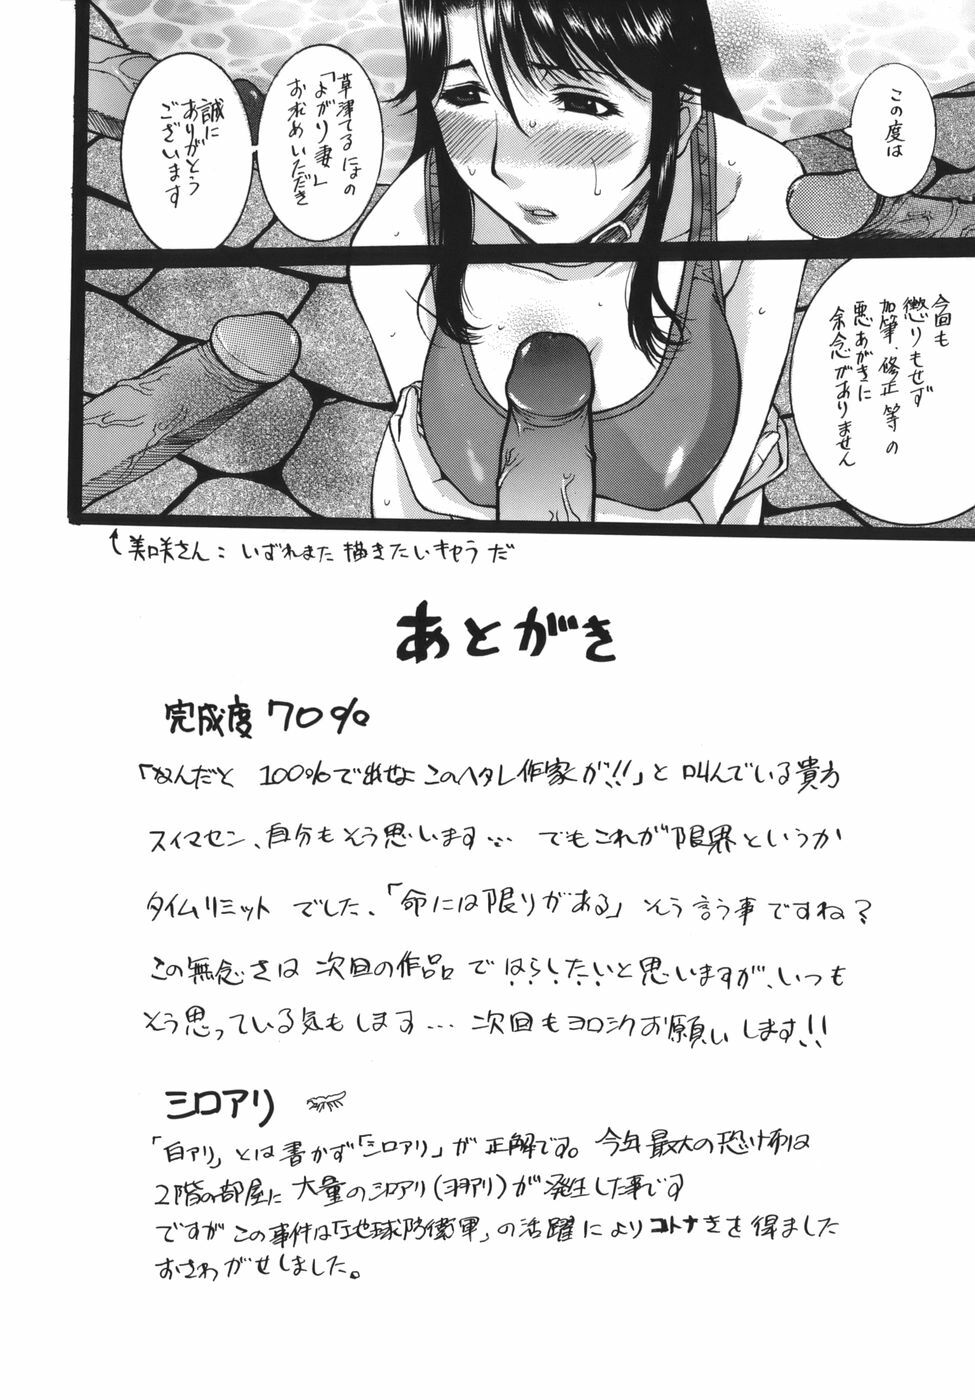 この度は
草津てるにょの
「よがり妻」
お求めいただき
誠に
ありがとう
ございます
今回も
懲りもせず
加筆、修正等の
悪あがきに
余念がありません
美咲さん：いずれまた描きたいキャラだ
あとがき
完成度70%
「なんだと 100%で出せよこのヘタレ作家が!!」と叫んでいる貴方
スイマセン、自分もそう思います… でもこれが限界というか
タイムリミットでした、「命には限りがある」そう言う事ですね?
この無念さは次回の作品ではらしたいと思いますが、いつも
そう思っている気もします… 次回もヨロシクお願いします!!
シロアリ
「白アリ」とは書かず「シロアリ」が正解です。今年最大の恐怖は
2階の部屋に大量のシロアリ(ヨヨアリ)が発生した事です
ですがこの事件は「地球防衛軍」の活躍によりコトナきを得ました
おさわがせしました。